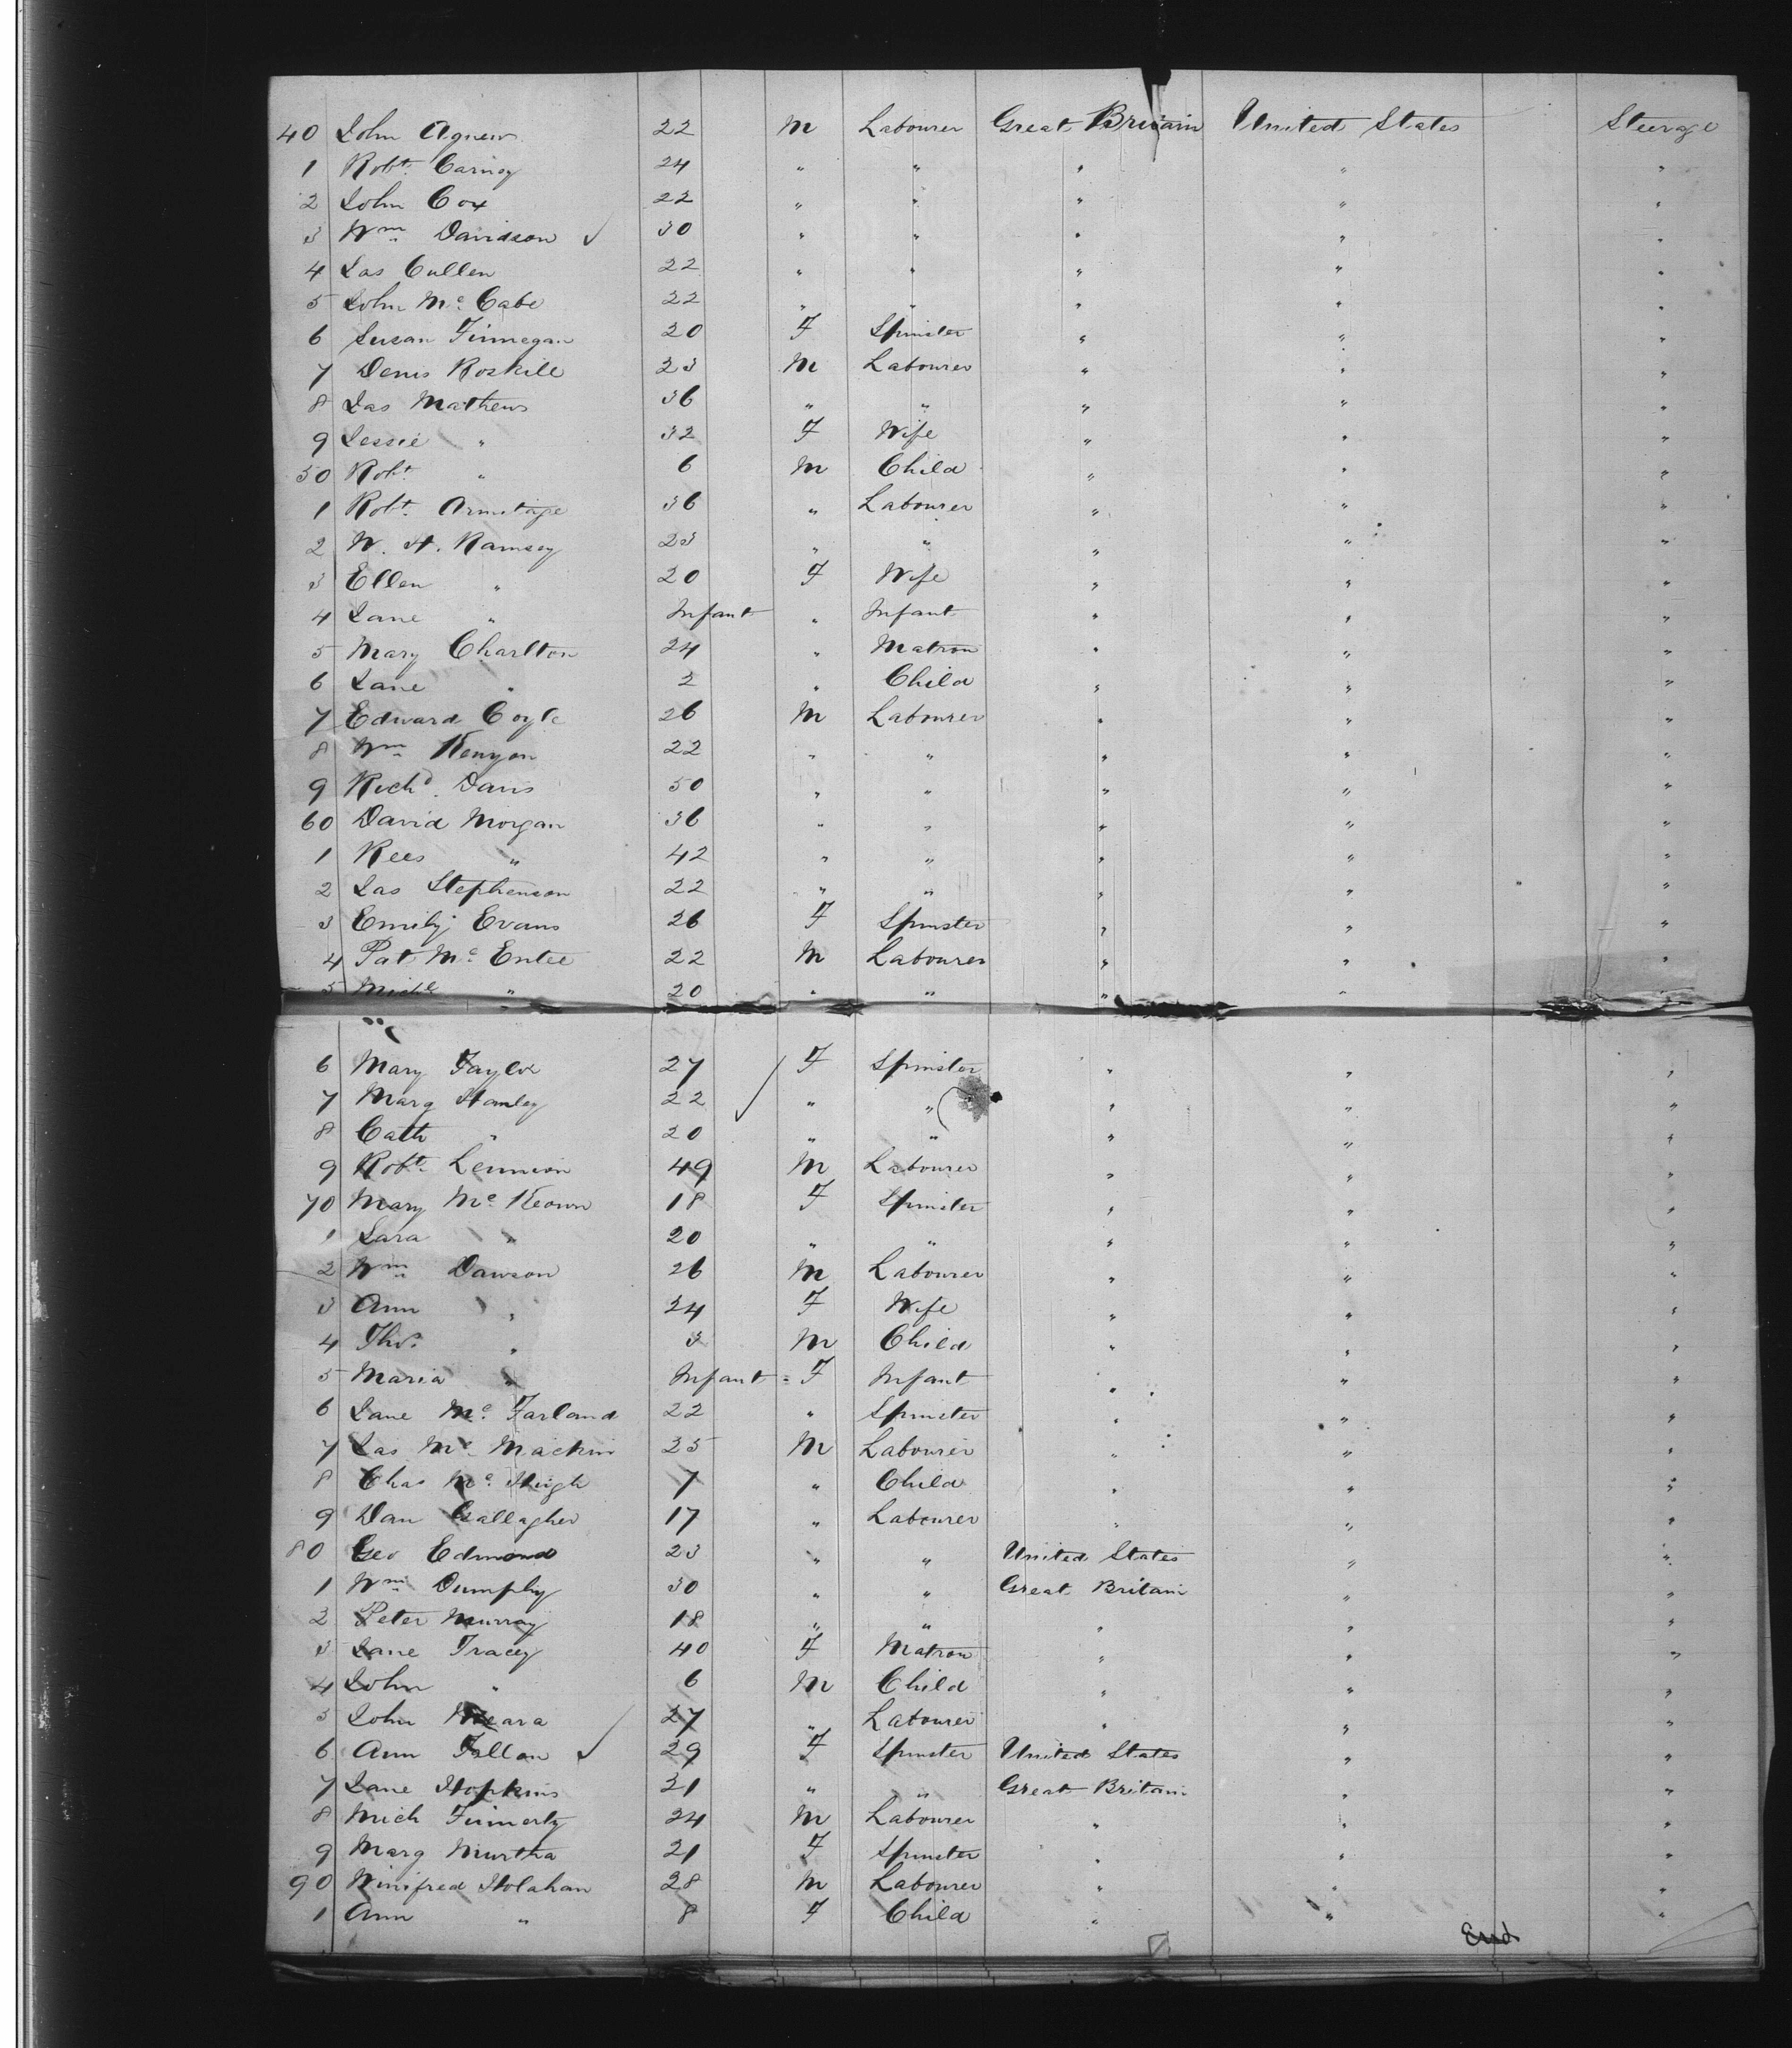 40 John Agnew 22 M Labourer Great Britain United States Steerage
1 Robt. Carney 24 " " " " "
2 John Cox 22 " " " " "
3 Wm Davidson ✓ 30 " " " " "
4 Jas Cullen 22 " " " " "
5 John Mc Cabe 22 " " " " "
6 Susan Finnegan 20 F Spinster " " "
7 Denis Roskill 23 M Labourer " " "
8 Jas Mathews 36 " " " " "
9 Jessie " 32 F Wife " " "
50 Robt. " 6 M Child " " "
1 Robt. Armitage 36 " Labourer " " "
2 W. H. Ramsey 23 " " " " "
3 Ellen " 20 F Wife " " "
4 Jane " Infant " Infant " " "
5 Mary Charlton 24 " Matron " " "
6 Jane " 2 " Child " " "
7 Edward Coyle 26 M Labourer " " "
8 Wm Kenyon 22 " " " " "
9 Richd. Davis 50 " " " " "
60 David Morgan 36 " " " " "
1 Rees " 42 " " " " "
2 Jas Stephenson 22 " " " " "
3 Emily Evans 26 F Spinster " " "
4 Pat Mc Entee 22 M Labourer " " "
5 Michl " 20 " " " " "
6 Mary Taylor 27 F Spinster " " "
7 Marg Hanley 22 ✓ " " " " "
8 Cath " 20 " " " " "
9 Robt. Lennion 49 M Labourer " " "
70 Mary Mc Keown 18 F Spinster " " "
1 Sara " 20 " " " " "
2 Wm Dawson 26 M Labourer " " "
3 Ann " 24 F Wife " " "
4 Tho. " 3 M Child " " "
5 Maria " Infant F Infant " " "
6 Jane Mc. Farland 22 " Spinster " " "
7 Jas Mc Mackin 25 M Labourer " " "
8 Chas Mc. Hugh 7 " Child " " "
9 Dan Gallagher 17 " Labourer " " "
80 Geo Edmond 23 " " United States " "
1 Wm Dumphy 30 " " Great Britain " "
2 Peter Murray 18 " " " " "
3 Jane Tracey 40 F Matron " " "
4 John " 6 M Child " " "
5 John Meara 27 " Labourer " " "
6 Ann Fallon ✓ 29 F Spinster United States " "
7 Jane Hopkins 21 " " Great Britain " "
8 Mich Finnerty 24 M Labourer " " "
9 Marg Murtha 21 F Spinster " " "
90 Winifred Holahan 28 M Labourer " " "
1 Ann " 8 F Child " " "
End